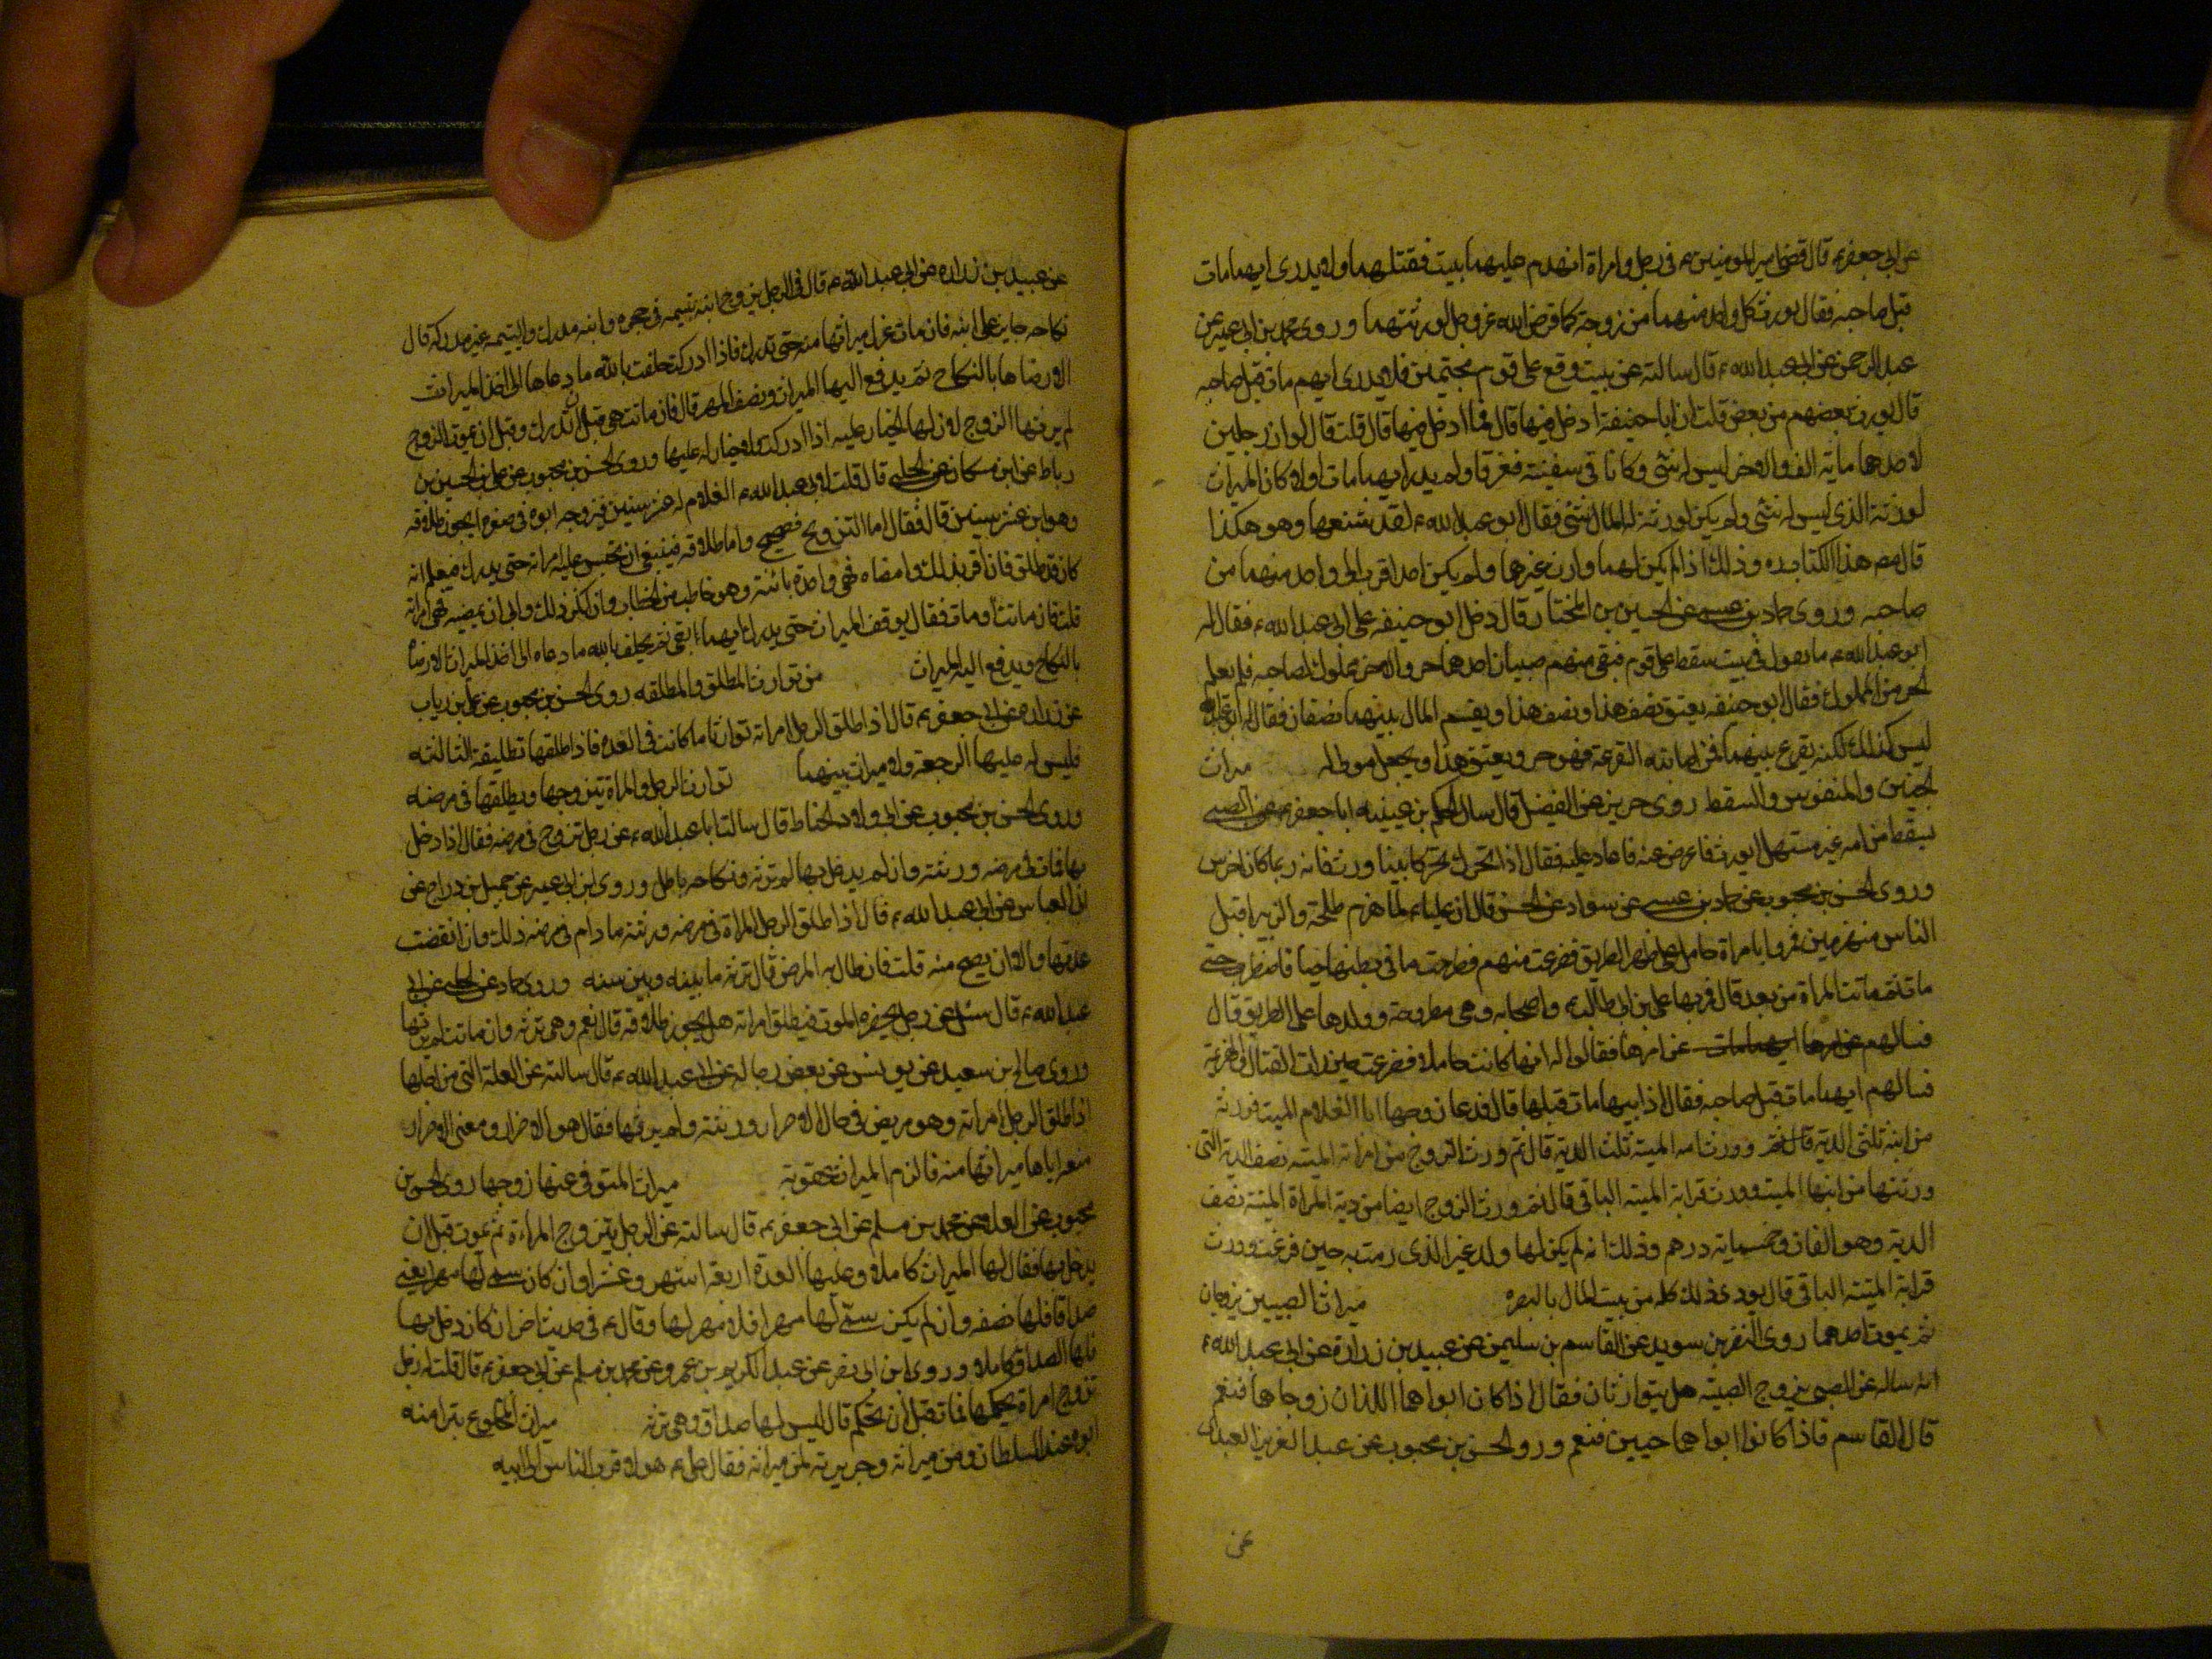 عن ابی جعفر ع قال قضی امیر المومنین ع فی رجل وامراة انهدم علیهما بیت فقتلهما ولا یدری ایهما مات
قبل صاحبه فقال یورث کل واحد منهما من زوجه کما فرض الله عز وجل لورثتهما وروی محمد بن ابی عمیر عن
عبد الرحمن عن ابی عبد الله ع قال سالته عن بیت وقع علی قوم مجتمعین فلا یدری ایهم مات قبل صاحبه
قال یورث بعضهم من بعض قلت ان ابا حنیفة ادخل فیها قال وما ادخل فیها قال قلت قال لو ان رجلین
لاحدهما مایة الف والاخر لیس له شی وکانا فی سفینة فغرقا ولم یدر ایهما مات اولا کان المیراث
لورثة الذی لیس له شی ولم یکن لورثة المال شی فقال ابو عبد الله ع لقد شنعها وهو هکذا
قال مص هذا الکتاب ره وذلک اذا لم یکن لهما وارث غیرهما ولم یکن احد اقرب الی واحد منهما من
صاحبه وروی حماد بن عیسی عن الحسین بن المختار قال دخل ابو حنیفه علی ابی عبد الله ع فقال له
ابو عبد الله ع ما تقول فی بیت سقط علی قوم فبقی منهم صبیان احدهما حر والاخر مملوک لصاحبه فلم یعلم
الحر من المملوک فقال ابو حنیفه یعتق نصف هذا ونصف هذا ویقسم المال بینهما نصفان فقال ابو عبد الله
لیس کذلک لکنه یقرع بینهما فمن اصابته القرعة فهو حر ویعتق هذا ویجعل مولی له میراث
الجنین والمنفوس والسقط روی حریز عن الفضیل قال سال الحکم بن عیینه ابا جعفر ع عن الصبی
یسقط من امه غیر مستهل ایورث فاعرض عنه فاعاد علیه فقال اذا تحرک تحرکا بینا ورث فانه ربما کان اخرس
وروی الحسن بن محبوب عن حماد بن عیسی عن سواد عن الحسن قال ان علیا ع لما هزم طلحة والزبیر اقبل
الناس منهزمین فمروا بامراة حامل علی ظهر الطریق ففزعت منهم فطرحت ما فی بطنها حیا فاضطرب حتی
مات ثم ماتت المراة من بعد قال فمر بها علی بن ابی طالب ع واصحابه وهی مطروحة وولدها علی الطریق قال
فسالهم عن امرها ایهما مات عن امرها فقالوا له انها کانت حاملا ففزعت حین رات القتال والهزیمة
فسالهم ایهما مات قبل صاحبه فقالوا ان ابنها مات قبلها قال فدعا زوجها ابا الغلام المیت فورثه
من ابنه ثلثی الدیة قال ثم وورث امه المیتة ثلث الدیة قال ثم ورث الزوج من امراته المیته نصف الدیة التی
ورثتها من ابنها المیت وورث قرابة المیته الباقی قال ثم ورث الزوج ایضا من دیة المراة المیتة نصف
الدیة وهو الفان وخمسمایة درهم وذلک انه لم یکن لها ولد غیر الذی رمت به حین فزعت وورث
قرابة المیتة الباقی قال یودی ذلک کله من بیت المال بالبصره میراث الصبیین یزوجان
ثم یموت احدهما روی النضر بن سوید عن القاسم بن سلیمن عن عبید بن زرارة عن ابی عبد الله ع
انه ساله عن الصبی یزوج الصبیة هل یتوارثان فقال اذا کان ابواهما اللذان زوجاهما فنعم
قال القاسم فاذا کانوا ابواهما حیین فنعم وروی الحسن بن محبوب عن عبد العزیز العبدی
عن
عن عبید بن زراره عن ابی عبد الله ع قال فی الرجل یزوج ابنه یتیمه فی حجره وابنه مدرک والیتیمه غیر مدرکه قال
نکاحه جایز علی ابنه فان مات عزل میراثها منه حتی تدرک فاذا ادرکت حلفت بالله ما دعاها الی اخذ المیراث
الا رضاها بالنکاح ثم یدفع الیها المیراث ونصف المهر قال فان ماتت هی قبل ان تدرک وقبل ان یموت الزوج
لم یرثها الزوج لان لها الخیار علیه اذا ادرکت ولا خیار له علیها وروی الحسن بن محبوب عن علی بن الحسین بن
رباط عن ابن مسکان عن الحلبی قال قلت لابی عبد الله ع الغلام له عشر سنین فیزوجه ابوه فی صغره ایجوز طلاقه
وهو ابن عشر سنین قال فقال اما التزویج فصحیح واما طلاقه فینبغی ان تحبس علیه امراته حتی یدرک فیعلم انه
کان قد طلق فان اقر بذلک وامضاه فهی واحدة بائنة وهو خاطب من الخطاب وان انکر ذلک وابی ان یمضیه فهی امراته
قلت فان ماتت او مات فقال یوقف المیراث حتی یدرک ایهما بقی ثم یحلف بالله ما دعاه الی اخذ المیراث الا رضاه
بالنکاح ویدفع الیه المیراث من توارث المطلق والمطلقه روی الحسن بن محبوب عن علی بن ریاب
عن زراره عن ابی جعفر ع قال اذا طلق الرجل امراته توارثا ما کانت فی العده فاذا طلقها تطلیقة الثالثه
فلیس له علیها الرجعة ولا میراث بینهما توارث الرجل والمراة یتزوجها ویطلقها فی مرضه
وروی الحسن بن محبوب عن ابی ولاد الحناط قال سالت ابا عبد الله ع عن رجل تزوج فی مرضه فقال اذا دخل
بها فمات فی مرضه ورثته وان لم یدخل بها لم ترثه ونکاحه باطل وروی ابن ابی عمیر عن جمیل بن دراج عن
ابی العباس عن ابی عبد الله ع قال اذا طلق الرجل المراة فی مرضه ورثته ما دام فی مرضه ذلک وان انقضت
عدتها والا ان یصح منه قلت فان طال به المرض قال ترثه ما بینه وبین سنه وروی حماد عن الحلبی عن ابی
عبد الله ع قال سئل عن رجل یحضره الموت فیطلق امراته هل یجوز طلاقه قال نعم وهی ترثه وان ماتت لم یرثها
وروی صالح بن سعید عن یونس عن بعض رجاله عن ابی عبد الله ع قال سالته عن العلة التی من اجلها
اذا طلق الرجل امراته وهو مریض فی حال الاضرار ورثته ولم یرثها فقال هو الاضرار ومعنی الاضرار
منعه ایاها میراثها منه فالزم المیراث عقوبة میراث المتوفی عنها زوجها روی الحسن بن
محبوب عن العلا عن محمد بن مسلم عن ابی جعفر ع قال سالته عن الرجل یتزوج المراة ثم یموت قبل ان
یدخل بها فقال لها المیراث کاملا وعلیها العدة اربعة اشهر وعشرا وان کان سمی لها مهرا یعنی
صداقا فلها نصفه وان لم یکن سمی لها مهرا فلا مهر لها وقال ع فی حدیث اخر ان کان دخل بها
فلها الصداق کاملا وروی ابن ابی نصر عن عبد الکریم بن عمرو عن محمد بن مسلم عن ابی جعفر ع قال قلت له رجل
تزوج امراة بحکمها فمات قبل ان تحکم قال لیس لها صداق وهی ترثه میراث المخلوع یتبرا منه
ابوه عند السلطان ومن میراثه وجریرته لمن میراثه فقال علی ع هو لاقرب الناس الی ابیه